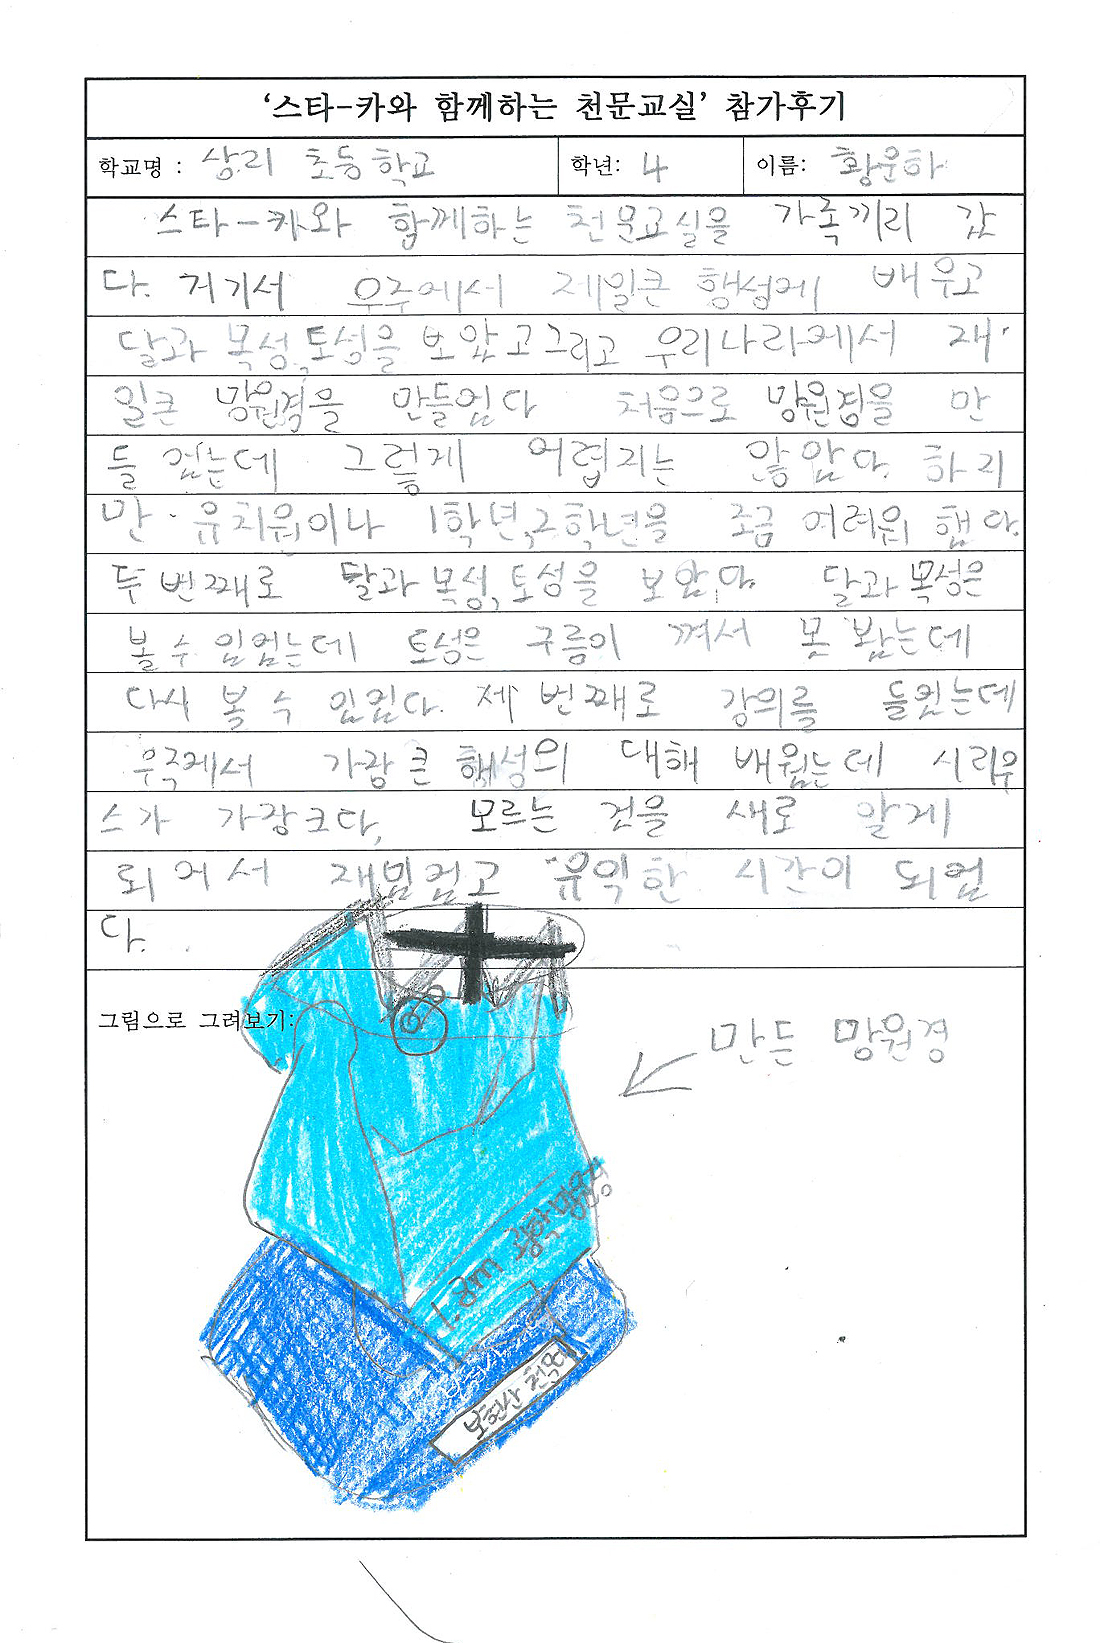 ‘스타-카와 함께하는 천문교실’ 참가후기
학교명 : 상리 초등학교 학년: 4 이름: 황운하
스타-카와 함께하는 천문교실을 가족끼리 갔
다. 거기서 우주에서 제일큰 행성에 배우고
달과 목성,토성을 보았고 그리고 우리나라에서 재
일큰 망원경을 만들었다 처음으로 망원경을 만
들 었는데 그렇게 어렵지는 않았다. 하지
만 유치원이나 1학년,2학년을 조금 어려워 했다.
두번째로 달과 목성,토성을 보았다. 달과 목성은
볼 수 있었는데 토성은 구름이 껴서 못 봤는데
다시 볼 수 있었다. 세 번째로 강의를 들었는데
우주에서 가장 큰 행성의 대해 배웠는데 시리우
스가 가장크다. 모르는 것을 새로 알게
되어서 재밌었고 유익한 시간이 되었
다.
그림으로 그려보기:
만든 망원경
1.8m 광학망원경
보현산 천문대